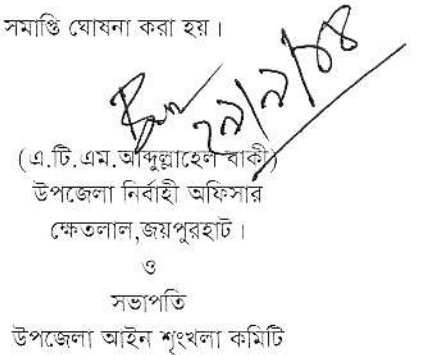 সমাপ্তি ঘোষনা করা হয়।
২৯/৯/১৪
(এ.টি.এম.আব্দুল্লাহেল বাকী)
উপজেলা নির্বাহী অফিসার
ক্ষেতলাল,জয়পুরহাট।
ও
সভাপতি
উপজেলা আইন শৃংখলা কমিটি